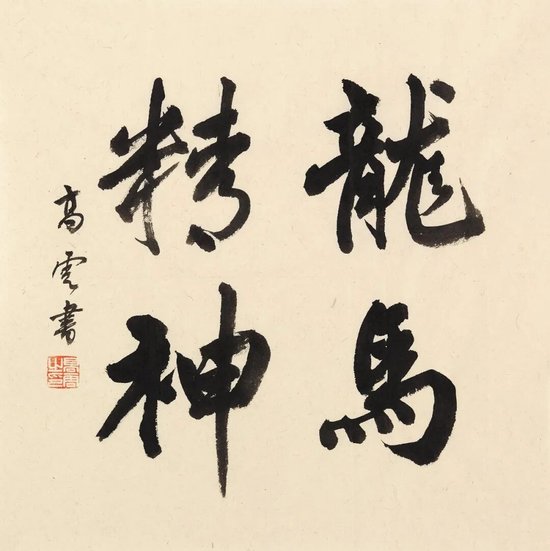 龍馬
精神
高雲書